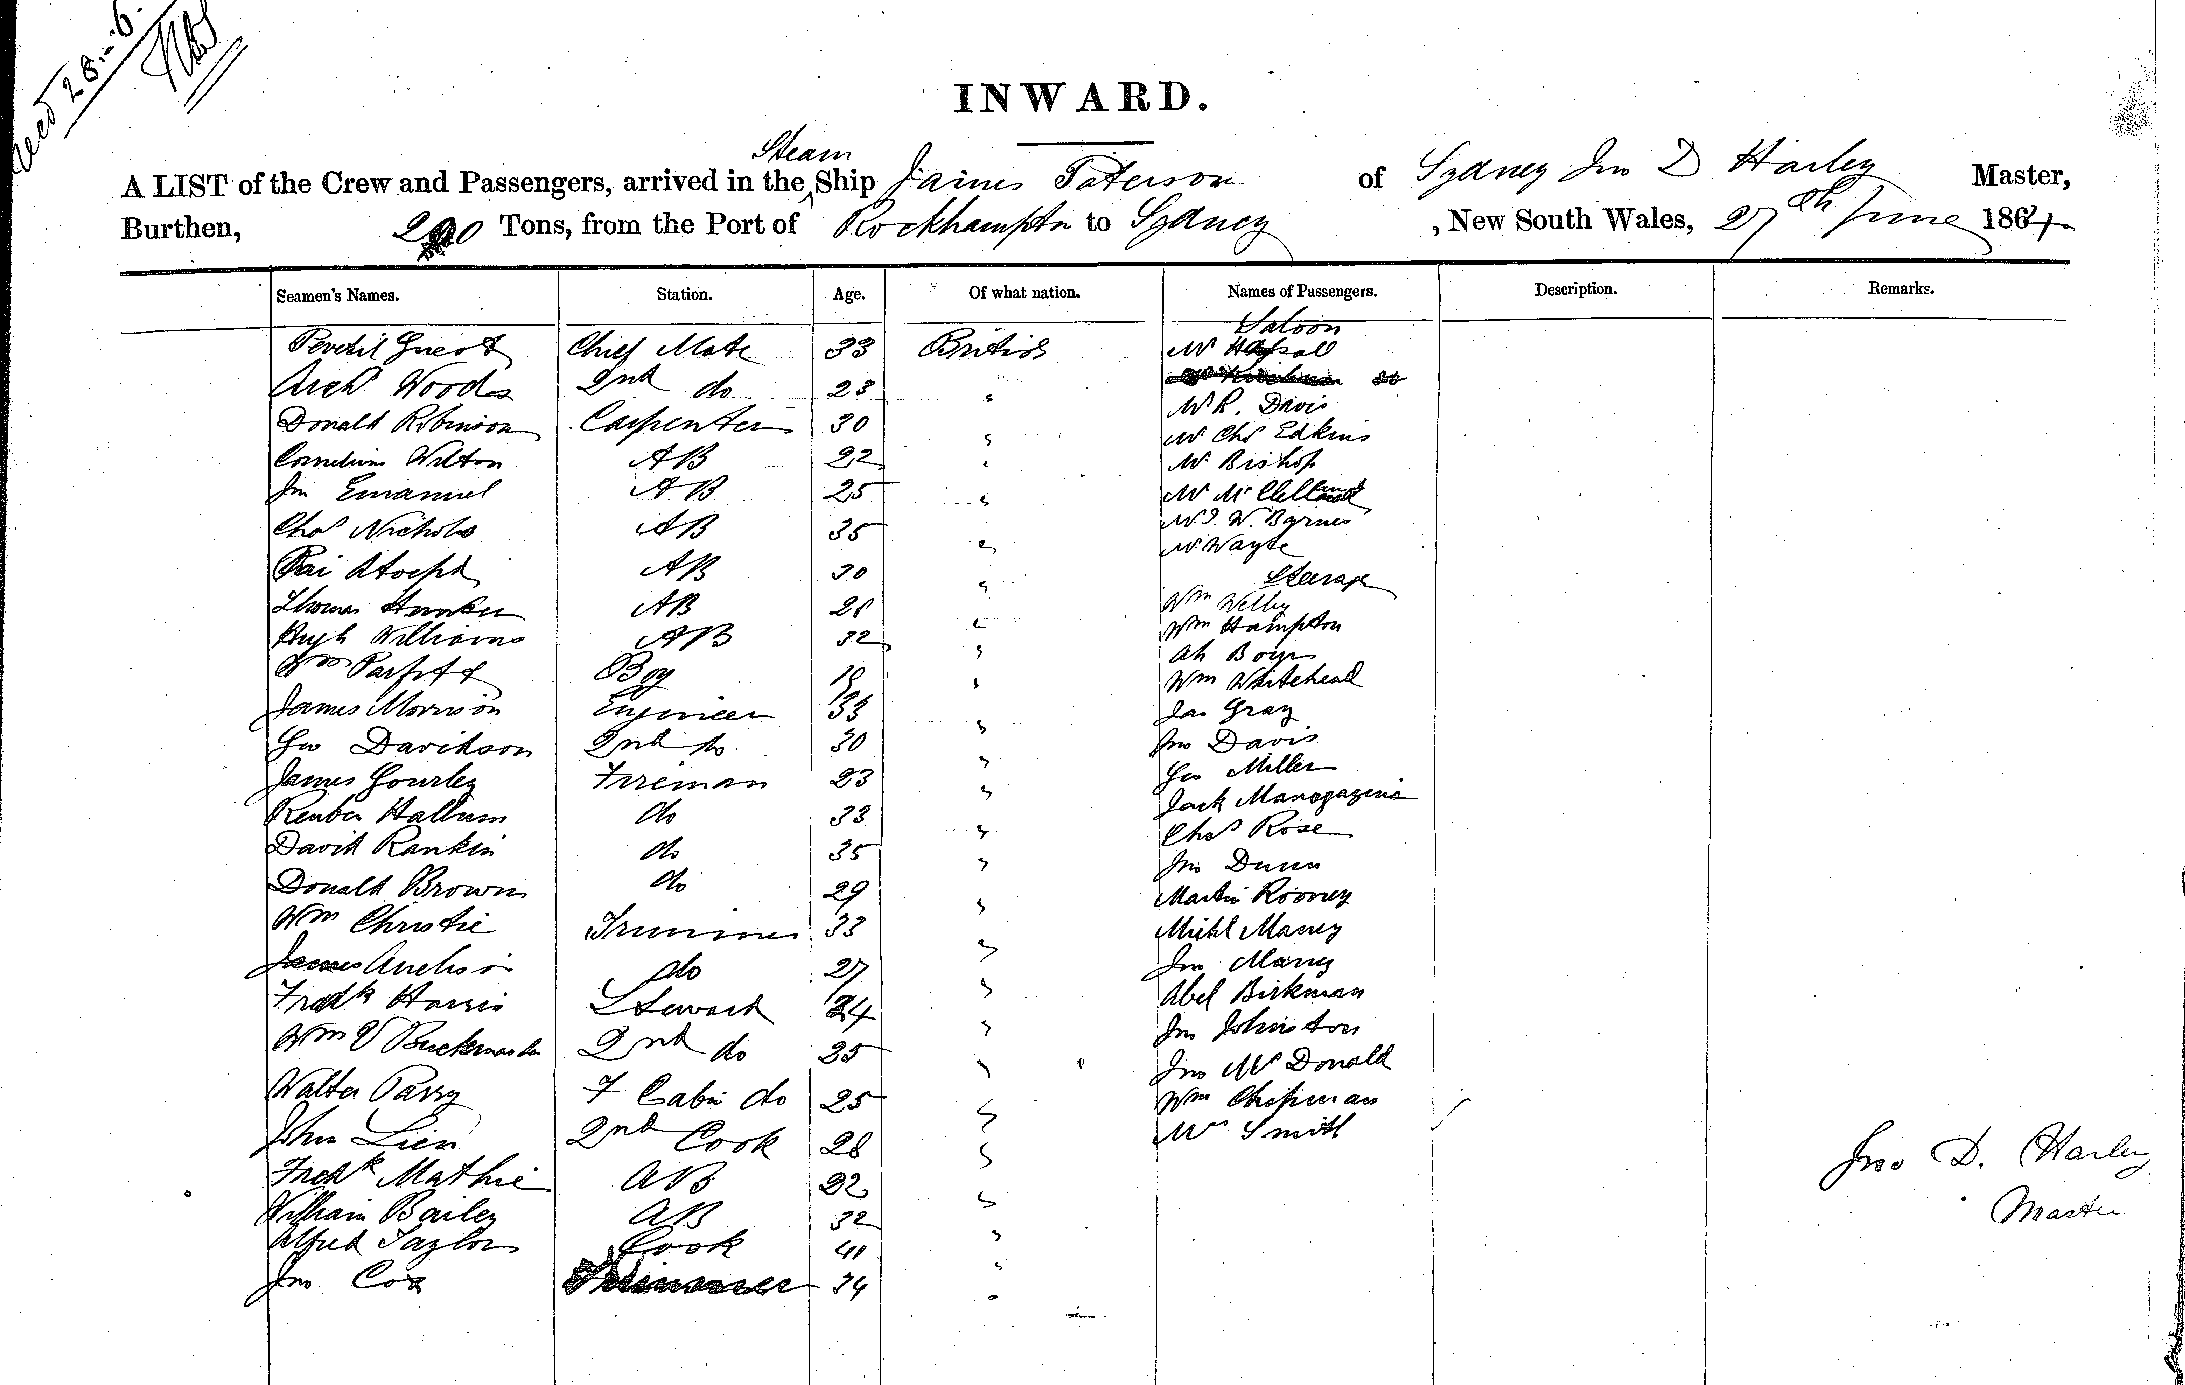 28-6
INWARD.
Steam
A LIST of the Crew and Passengers, arrived in the Ship James Paterson of Sydney Jno D Harley Master,
Burthen, Tons, from the Port of Rockhampton to Sydney , New South Wales, 27th June 1864
Seamen's Names. Station. Age. Of what nation. Names of Passengers. Description. Remarks.
Saloon
Guest Chief Mate 33 British Mr
Archd Woods 2nd do 23 "
Mr R. Davis
Donald Robinson Carpenter 30 " Mr Chs Edkins
Cornelius Wilton AB 22 " Mr Bishop
Jno Emanuel AB 25 " Mr McClelland
Chas Nichols AB 35 " Mr J. W. Barnes
Mr Wayte
AB 30 " Steerage
Thomas AB " Wm Welby
Hugh Williams AB 32 " Wm Hampton
Wm Parfitt Boy " Ah
Wm Whitehead
James Morrison Engineer 33 " Jas Gray
Geo Davidson 2nd do 30 " Jno Davis
James Gourley Fireman 23 " Geo Miller
Reuben Hallum do 33 " Jack
David Rankin do 35 " Chas Rose
Jno Dunn
Donald Brown do 29 " Martin Rooney
Wm Christie Trimmer 33 " Michl Maney
James do 27 " Jno Maney
Fredk Harris Steward 24 " Abel Birkman
Wm V Buckmaster 2nd do 25 " Jno Johnston
Jno McDonald
Walter Parry F Cabin do 25 " Wm Chapman
John Lien 2nd Cook 28 " Mr Smith
Fredk Mathie AB 22 "
William Bailey AB 32 "
Alfred Taylor Cook 41 "
Jno Cox Trimmer 34 "
Jno D. Harley
Master